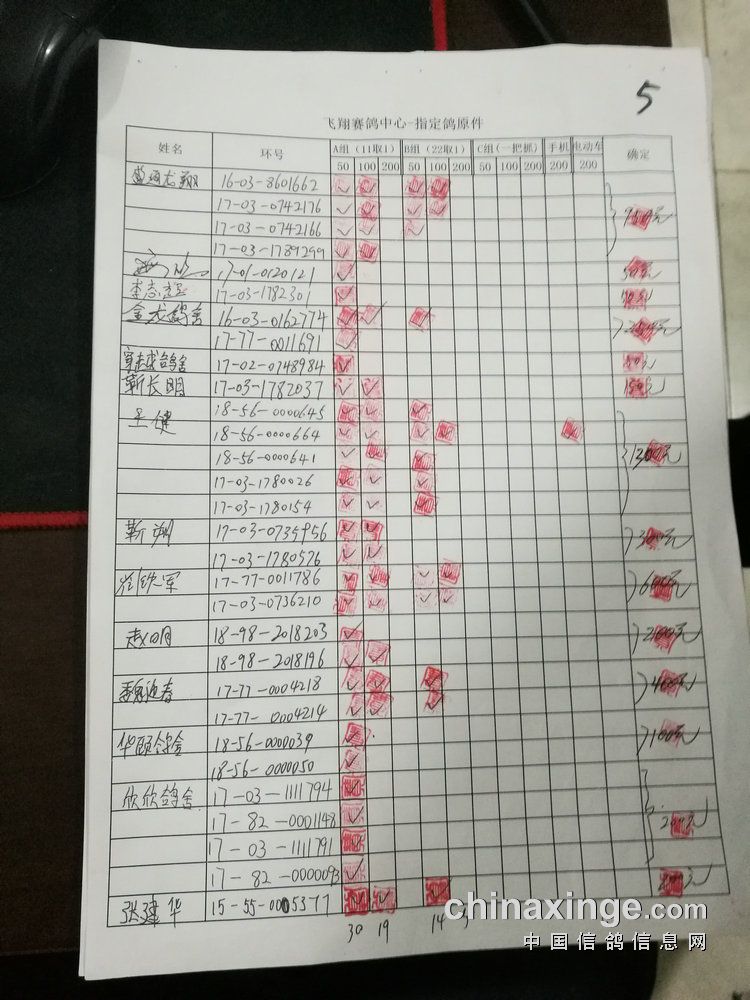 5
飞翔赛鸽中心-指定鸽原件
姓名 环号 A组（11取1） B组（22取1） C组（一把抓） 手机 电动车 确定
50 100 200 50 100 200 50 100 200 200 200
16-03-8601662
17-03-0742176
17-03-0742166
17-03-1789299
17-01-0120121 50元
17-03-1782301
金龙鸽舍 16-03-0162774
17-77-0011691
17-02-0748984
靳长明 17-03-1782037 150元
王健 18-56-0000645
18-56-0000664
18-56-0000641
17-03-1780026
17-03-1780154
靳朔 17-03-0735956 300元
17-03-1780576
崔铁军 17-77-0011786 600元
17-03-0736210
赵明 18-98-2018203
18-98-2018196
17-77-0004218 400元
17-77-0004214
华颐鸽舍 18-56-0000039 100元
18-56-0000050
欣欣鸽舍 17-03-1111794
17-82-0001148
17-03-1111791
17-82-0000093
张建华 15-55-0005377
30 19 14
chinaxinge.com
中国信鸽信息网